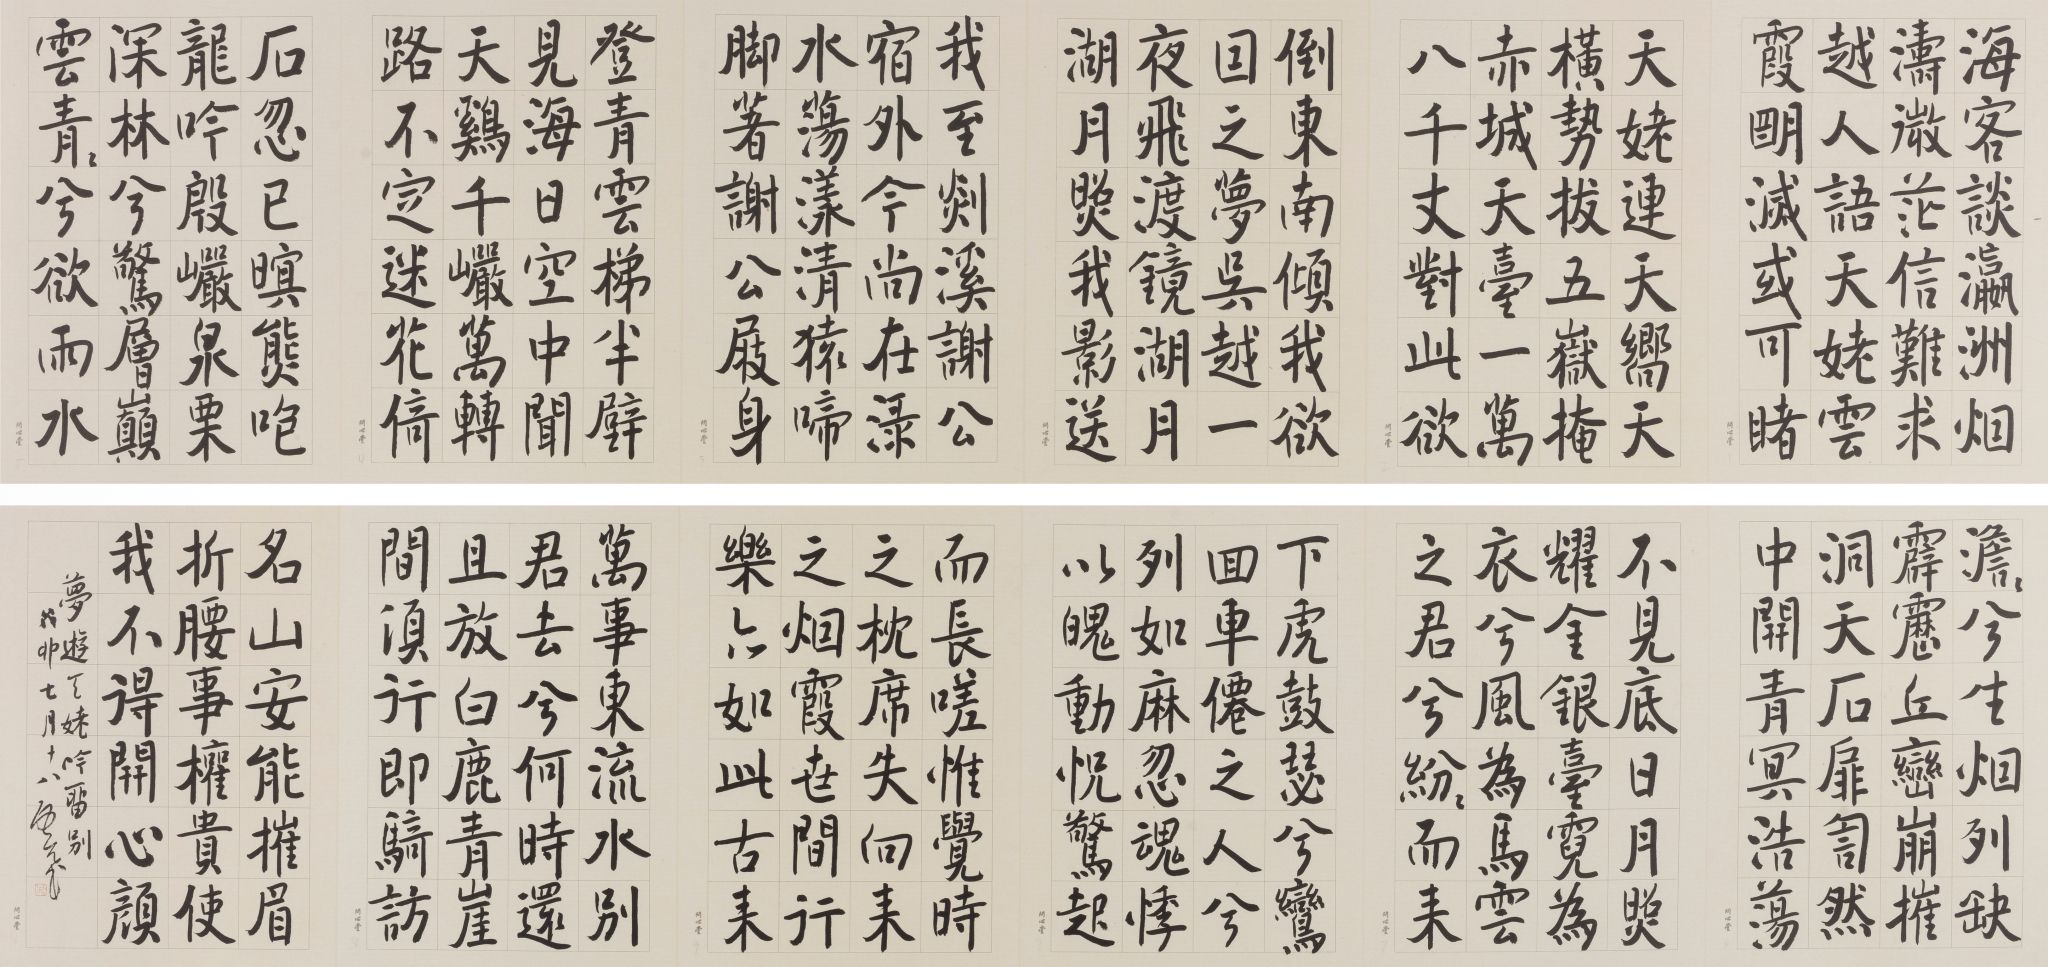 海客談瀛洲烟
濤微茫信難求
越人語天姥雲
霞明滅或可睹
天姥連天嚮天
橫勢拔五嶽掩
赤城天臺一萬
八千丈對此欲
倒東南傾我欲
因之夢吳越一
夜飛渡鏡湖月
湖月照我影送
我至剡溪謝公
宿处今尚在渌
水蕩漾清猿啼
脚著謝公屐身
登青雲梯半壁
見海日空中聞
天鷄千巖萬轉
路不定迷花倚
石忽已暝熊咆
龍吟殷巖泉栗
深林兮驚層巔
雲青々兮欲雨水
澹々兮生烟列缺
霹靂丘巒崩摧
洞天石扉訇然
中開青冥浩蕩
不見底日月照
耀金銀臺霓為
衣兮風為馬雲
之君兮紛々而来
下虎鼓瑟兮鸞
回車僊之人兮
列如麻忽魂悸
以魄動怳驚起
而長嗟惟覺時
之枕席失向来
之烟霞世間行
樂亦如此古来
萬事東流水別
君去兮何時還
且放白鹿青崖
間須行即騎訪
名山安能摧眉
折腰事權貴使
我不得開心顏
夢遊天姥吟留別
卯七月十八